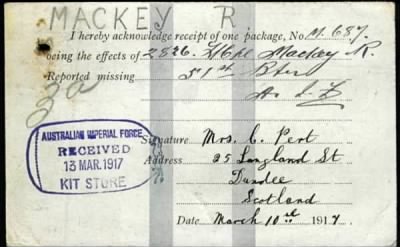 MACKEY R
I hereby acknowledge receipt of one package, No. M.687.
being the effects of 2826. L/Cpl Mackey R.
Reported missing 51st Btn
A. I. F
30
AUSTRALIAN IMPERIAL FORCE
RECEIVED
13 MAR. 1917
KIT STORE
Signature Mrs. C. Pert
Address 25 Langland St
Dundee
Scotland
Date March 10th 1917